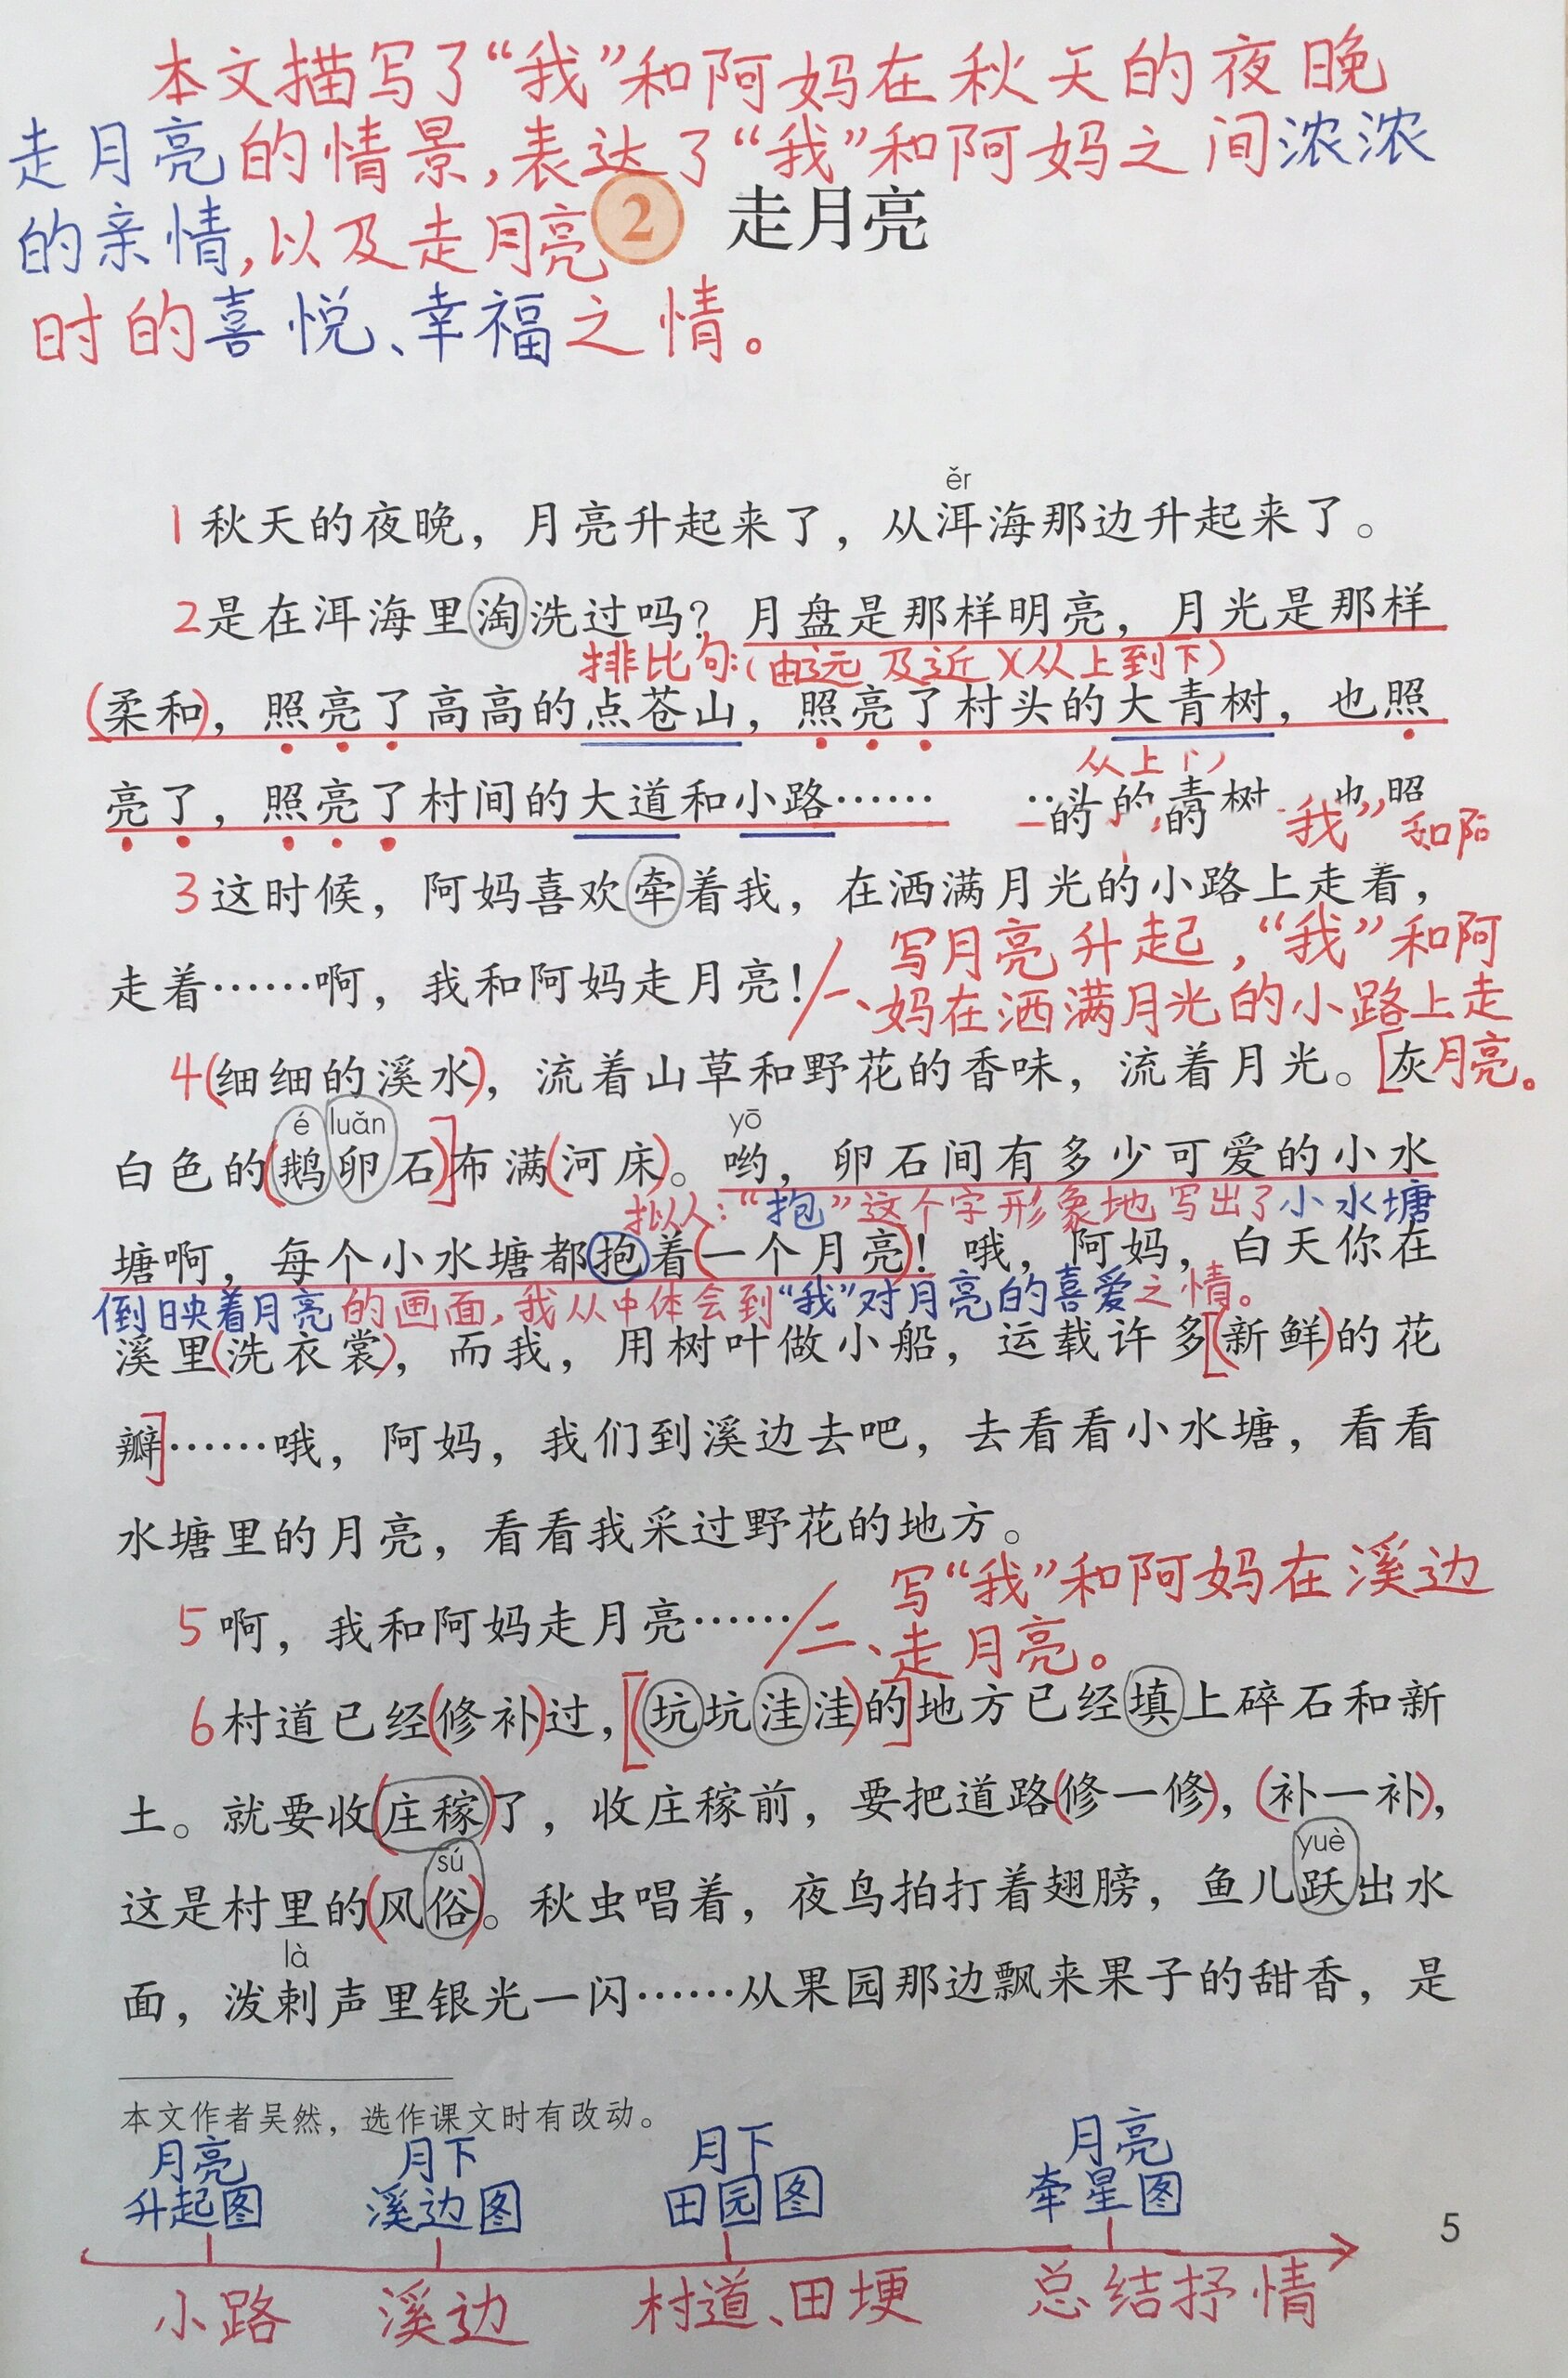 本文描写了“我”和阿妈在秋天的夜晚
走月亮的情景,表达了“我”和阿妈之间浓浓
的亲情,以及走月亮
时的喜悦、幸福之情。
2 走月亮
ěr
1秋天的夜晚，月亮升起来了，从洱海那边升起来了。
2是在洱海里淘洗过吗？月盘是那样明亮，月光是那样
排比句:(由远及近)(从上到下)
(柔和)，照亮了高高的点苍山，照亮了村头的大青树，也照
从上
亮了，照亮了村间的大道和小路……
头的青树 也照
的 的 我” 和阿
3这时候，阿妈喜欢牵着我，在洒满月光的小路上走着，
走着……啊，我和阿妈走月亮！
一、写月亮升起,“我”和阿
妈在洒满月光的小路上走
月亮。
4(细细的溪水)，流着山草和野花的香味，流着月光。[灰
é luǎn yō
白色的(鹅卵石)]布满(河床)。哟，卵石间有多少可爱的小水
拟人:“抱”这个字形象地写出了小水塘
塘啊，每个小水塘都抱着(一个月亮)！哦，阿妈，白天你在
倒映着月亮的画面,我从中体会到“我”对月亮的喜爱之情。
溪里(洗衣裳)，而我，用树叶做小船，运载许多[(新鲜)的花
瓣]……哦，阿妈，我们到溪边去吧，去看看小水塘，看看
水塘里的月亮，看看我采过野花的地方。
5啊，我和阿妈走月亮……
二、写“我”和阿妈在溪边
走月亮。
6村道已经(修补)过，[(坑坑洼洼)的]地方已经填上碎石和新
土。就要收(庄稼)了，收庄稼前，要把道路(修一修)，(补一补)，
sú yuè
这是村里的(风俗)。秋虫唱着，夜鸟拍打着翅膀，鱼儿跃出水
là
面，泼剌声里银光一闪……从果园那边飘来果子的甜香，是
本文作者吴然，选作课文时有改动。
月亮 月下 月下 月亮
升起图 溪边图 田园图 牵星图
5
小路 溪边 村道、田埂 总结抒情